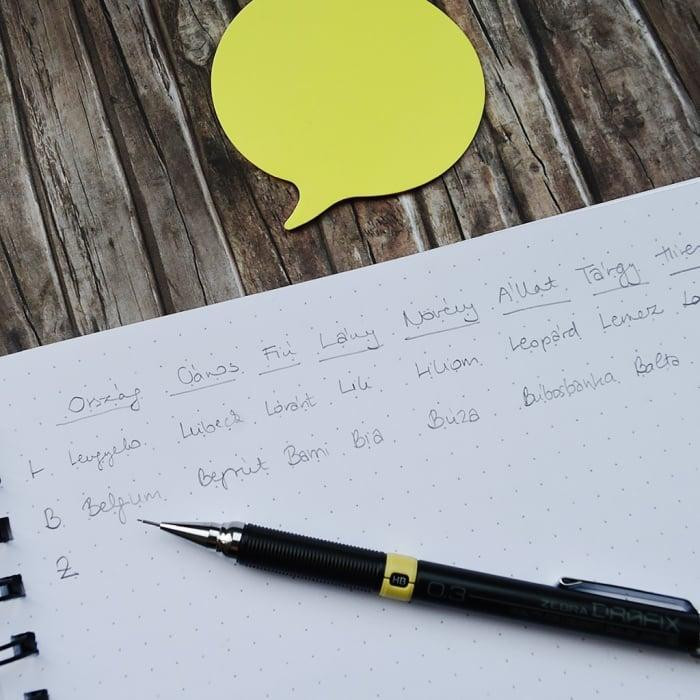 Ország Város Fiú Lány Növény Állat Tárgy Híre
L Lengyelo. Lübeck Lóránt Lili Liliom Leopárd Lemez
B Belgium Bejrút Barni Bia Búza Búbosbanka Balta
Z
HB 0.3 ZEBRA DRAFIX